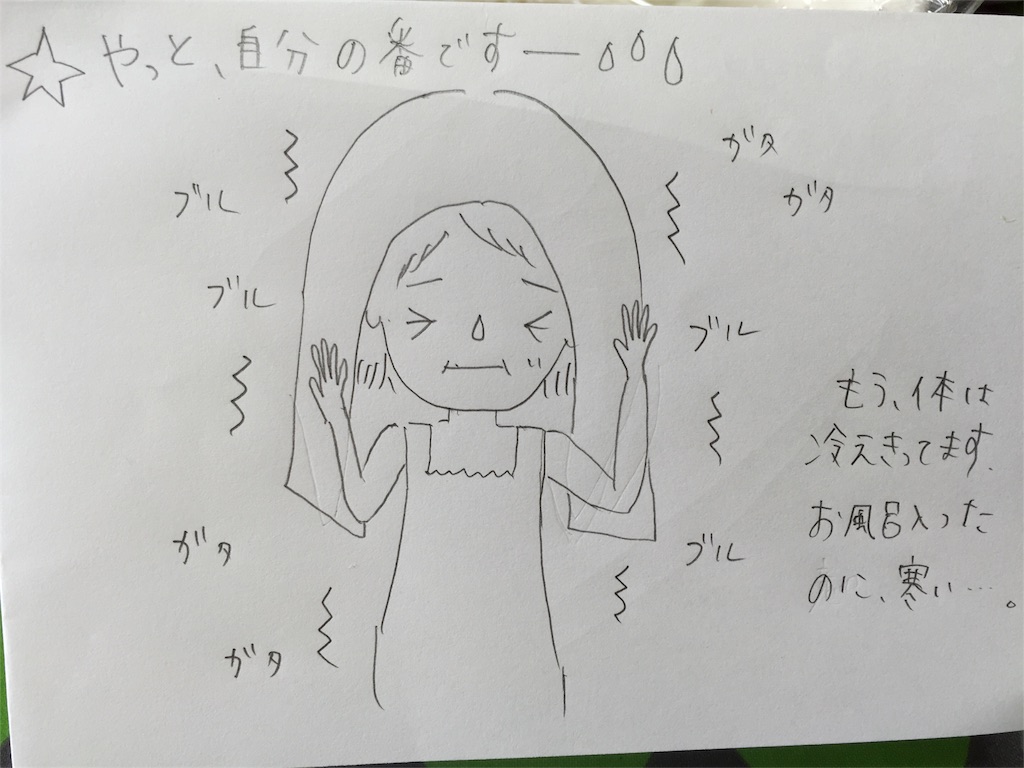 ☆やっと、自分の番ですー
ブル
ブル
ガタ
ガタ
ガタ
ガタ
ブル
ブル
もう、体は
冷えきってます.
お風呂入った
のに、寒い…。